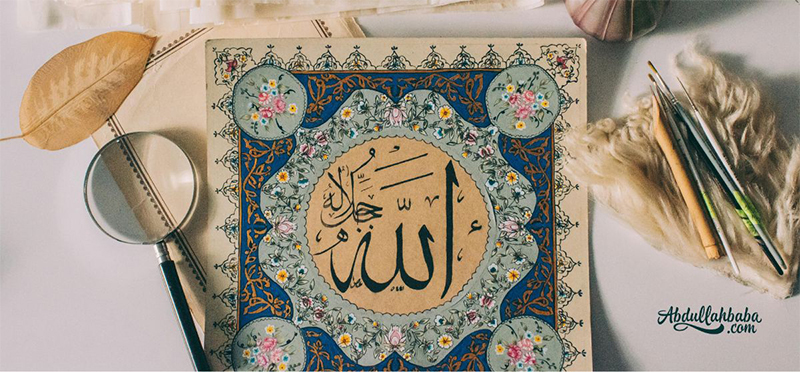 الله جل جلاله
Abdullahbaba
.com